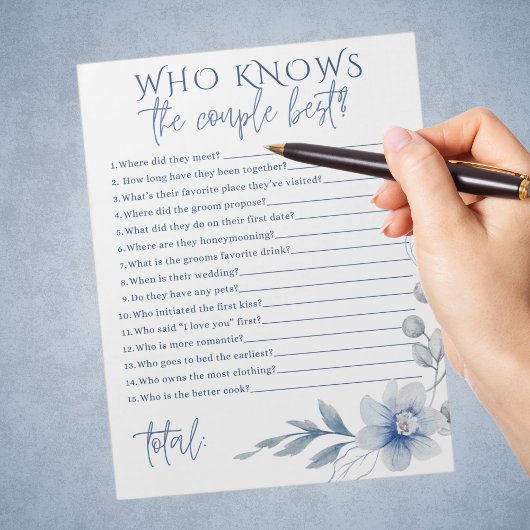 WHO KNOWS
the couple best?
1. Where did they meet?
2. How long have they been together?
3. What's their favorite place they've visited?
4. Where did the groom propose?
5. What did they do on their first date?
6. Where are they honeymooning?
7. What is the grooms favorite drink?
8. When is their wedding?
9. Do they have any pets?
10. Who initiated the first kiss?
11. Who said "I love you" first?
12. Who is more romantic?
13. Who goes to bed the earliest?
14. Who owns the most clothing?
15. Who is the better cook?
total: